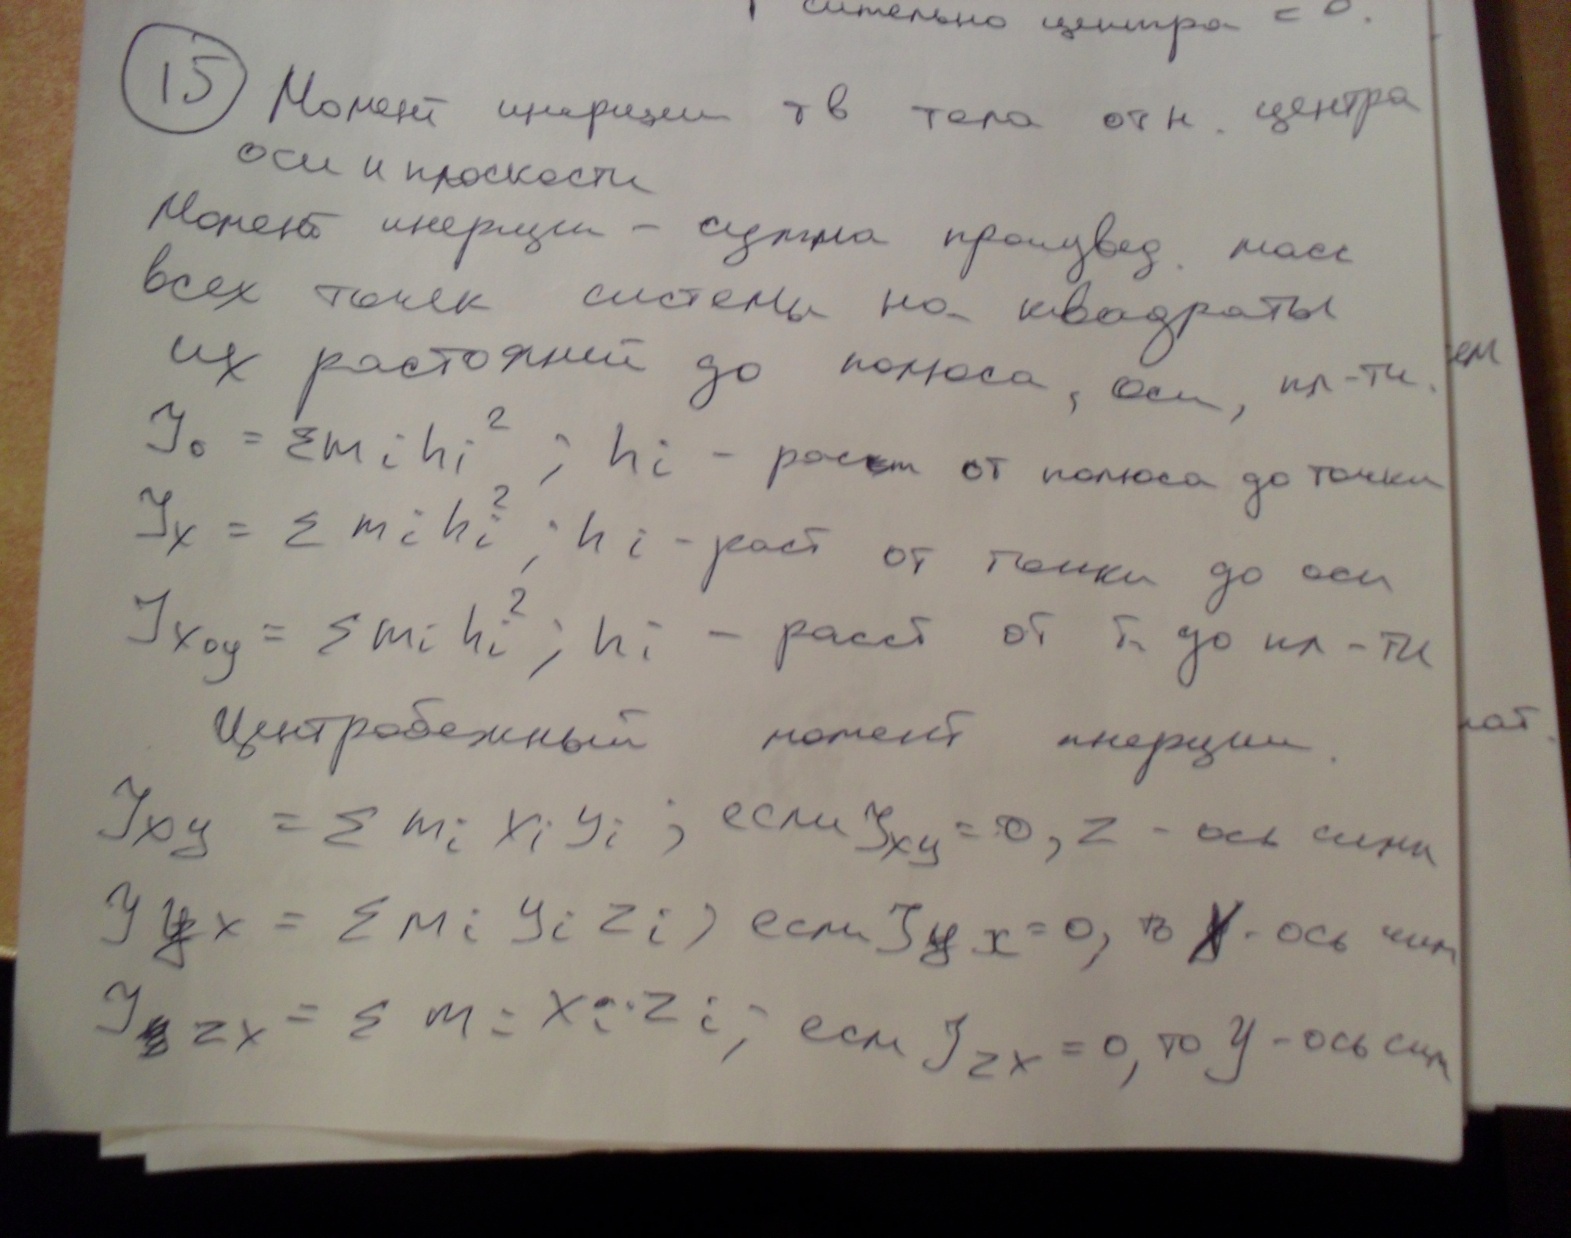 сительно центра = 0.
15 Момент инерции тв тела отн. центра
оси и плоскости
Момент инерции – сумма произвед. масс
всех точек системы на квадраты
их растояний до полюса, оси, пл-ти.
ем
J₀ = Σmᵢhᵢ² ; hᵢ – раст от полюса до точки
Jx = Σ mᵢhᵢ² ; hᵢ – раст от точки до оси
Jxoy = Σmᵢhᵢ² ; hᵢ – расст от т. до пл-ти
Центробежный момент инерции.
нат.
Jxy = Σ mᵢ xᵢ yᵢ ; если Jxy = 0, z – ось симм
Jyx = Σ mᵢ yᵢ zᵢ ) если Jyx = 0, то – ось сим
Jzx = Σ mᵢ xᵢ zᵢ ; если Jzx = 0, то y – ось сим